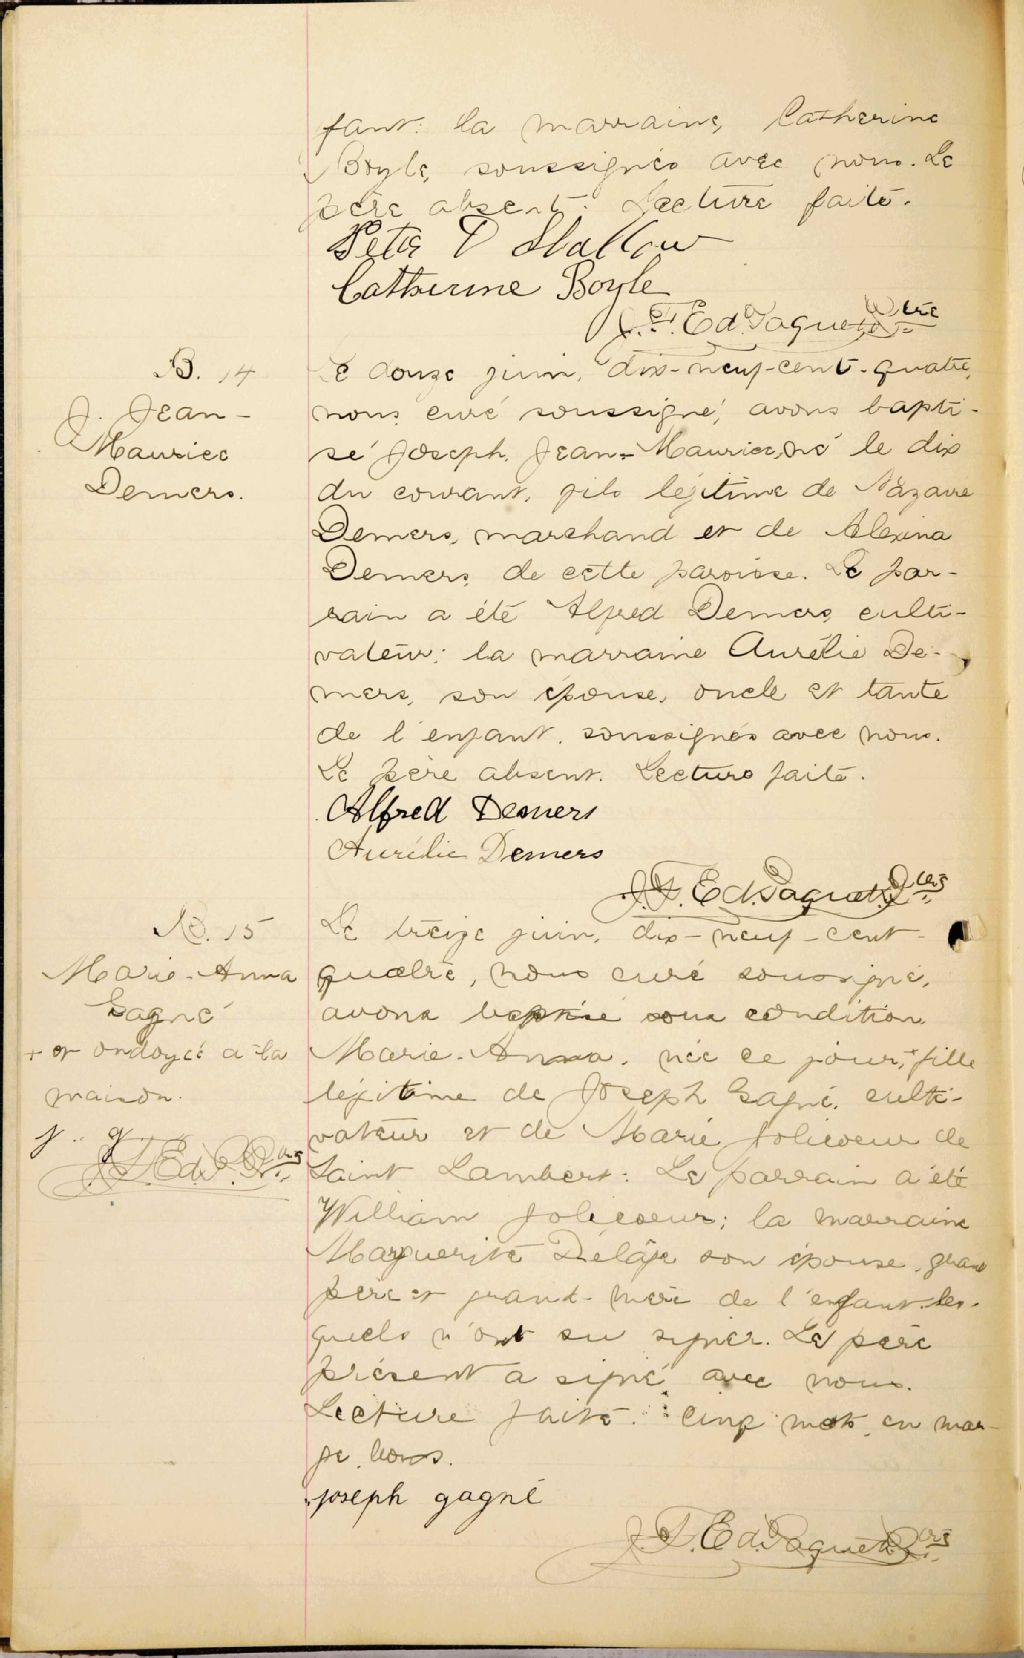 fant: la marraine, Catherine
Boyle, soussignés avec nous. Le
père absent. Lecture faite.
Peter D Shallow
Catherine Boyle
J. F. Ed. Paquet Ptre
B. 14
J. Jean-
Maurice
Demers.
Le douze juin, dix-neuf-cent-quatre,
nous curé soussigné, avons bapti-
sé Joseph, Jean-Maurice, né le dix
du courant, fils légitime de Nazaire
Demers, marchand et de Alexina
Demers, de cette paroisse. Le par-
rain a été Alfred Demers, culti-
vateur; la marraine Aurélie De-
mers, son épouse, oncle et tante
de l'enfant, soussignés avec nous.
Le père absent. Lecture faite.
Alfred Demers
Aurélie Demers
J. F. Ed. Paquet Ptre
B. 15
Marie-Anna
Gagné
+ et ondoyée a la
maison.
J. g.
J. F. Ed. P. Ptre
Le treize juin, dix-neuf-cent-
quatre, nous curé soussigné,
avons baptisé sous condition
Marie-Anna, née ce jour,+ fille
légitime de Joseph Gagné, culti-
vateur et de Marie Jolicoeur de
Saint Lambert: Le parrain a été
William Jolicoeur; la marraine
Marguerite Délâge son épouse, grand
père et grand-mère de l'enfant les-
quels n'ont su signer. Le père
présent a signé avec nous.
Lecture faite. Cinq mots en mar-
ge bons.
joseph gagné
J. F. Ed. Paquet Ptre